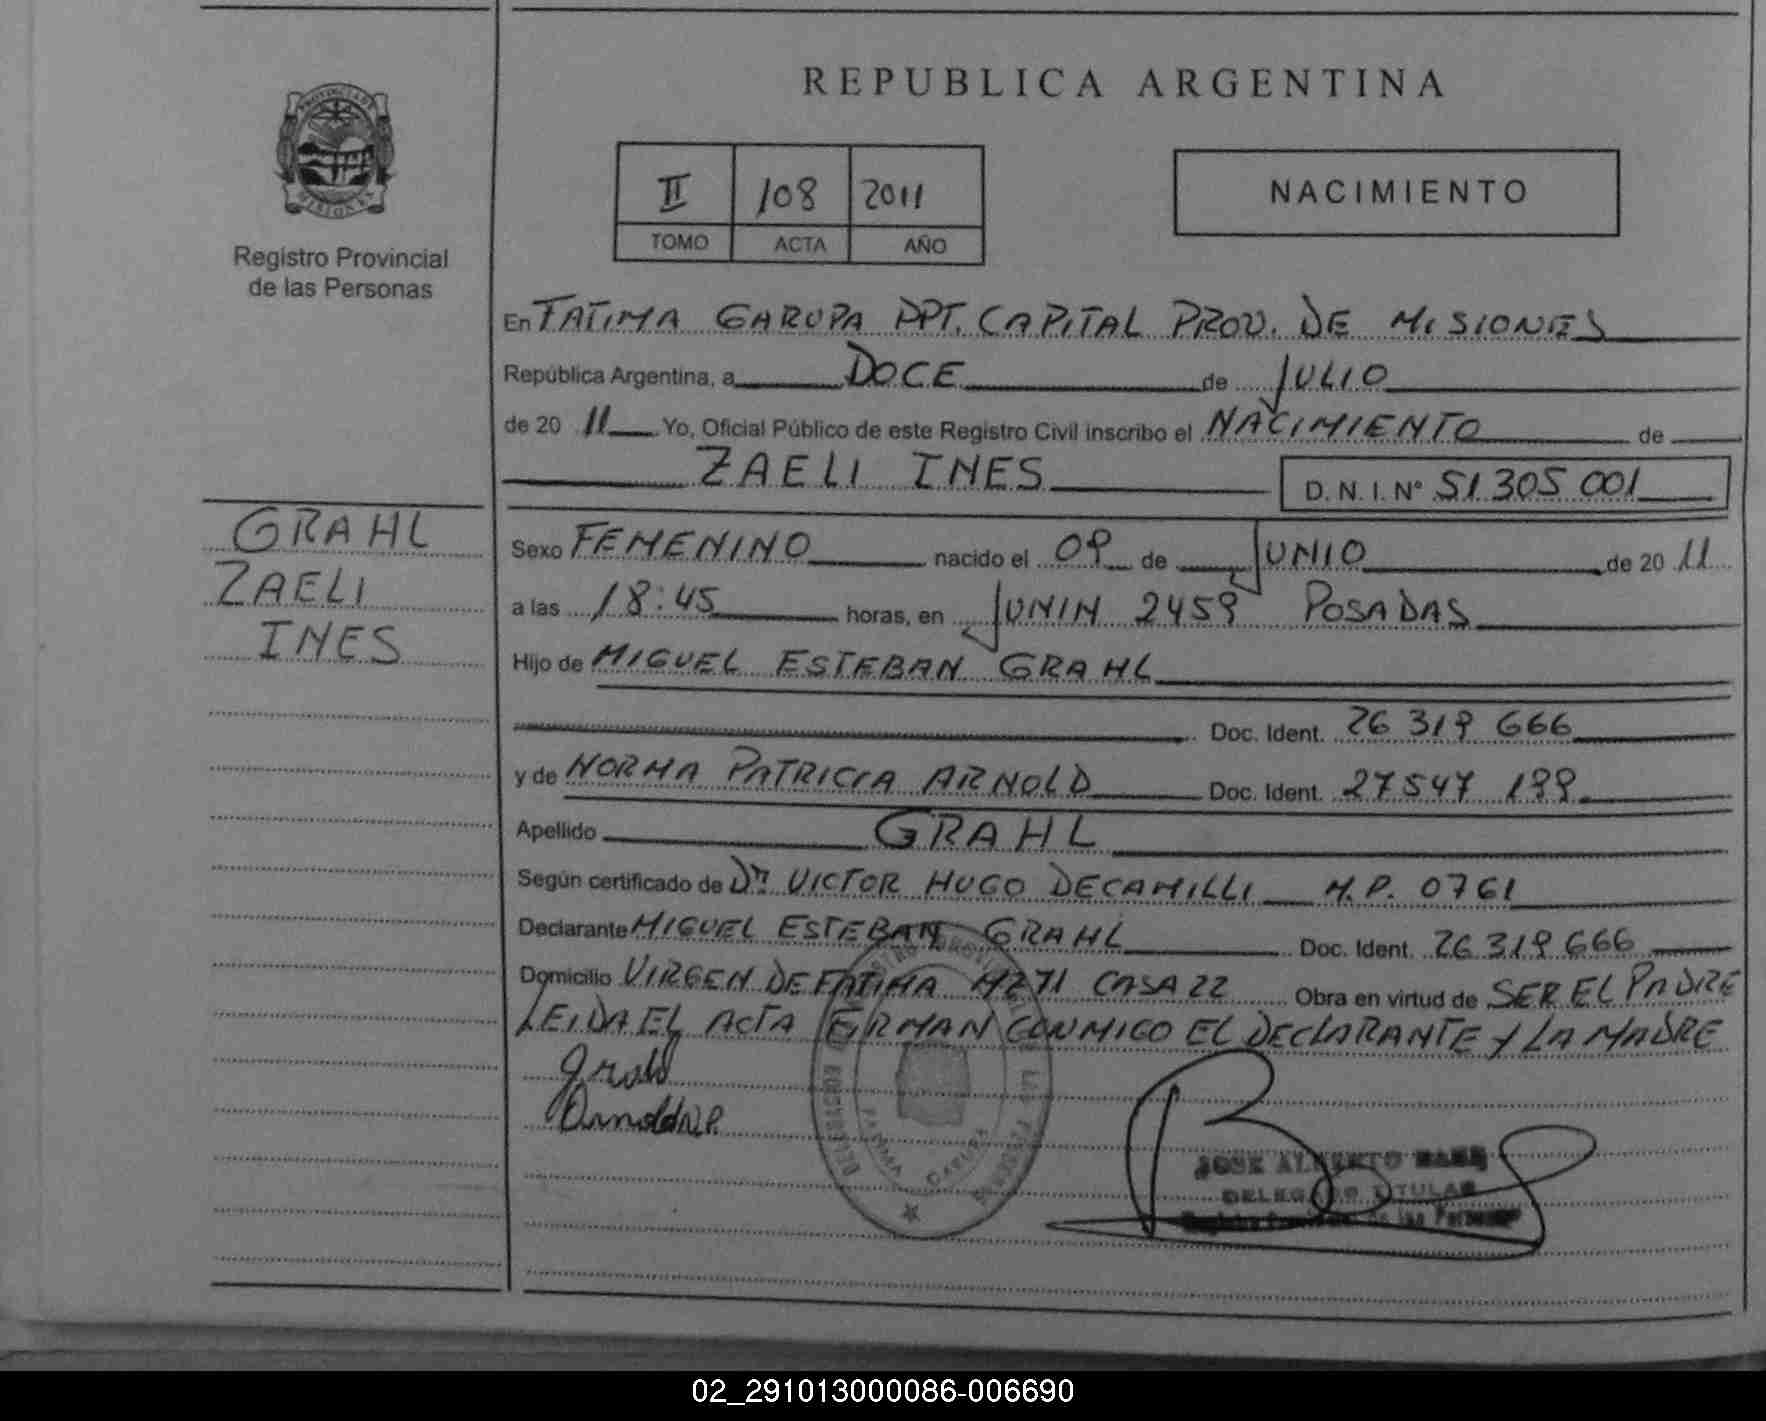 REPUBLICA ARGENTINA
PROVINCIA DE
MISIONES
Registro Provincial
de las Personas
II 108 2011
TOMO ACTA AÑO
NACIMIENTO
En FATIMA GARUPA DPT. CAPITAL PROV. DE MISIONES
República Argentina, a DOCE de JULIO
de 20 11 Yo, Oficial Público de este Registro Civil inscribo el NACIMIENTO de
ZAELI INES D.N.I. Nº 51 305 001
GRAHL
ZAELI
INES
Sexo FEMENINO nacido el 09 de JUNIO de 20 11
a las 18:45 horas, en JUNIN 2459 POSADAS
Hijo de MIGUEL ESTEBAN GRAHL
Doc. Ident. 26 319 666
y de NORMA PATRICIA ARNOLD Doc. Ident. 27547 199
Apellido GRAHL
Según certificado de Dr VICTOR HUGO DECAMILLI M.P. 0761
Declarante MIGUEL ESTEBAN GRAHL Doc. Ident. 26 319 666
Domicilio VIRGEN DE FATIMA MZ 71 CASA 22 Obra en virtud de SER EL PADRE
LEIDA EL ACTA FIRMAN CONMIGO EL DECLARANTE Y LA MADRE
Grahl
Arnold N.P.
JOSE ALBERTO
DELEGADO TITULAR
de las Personas
02_291013000086-006690